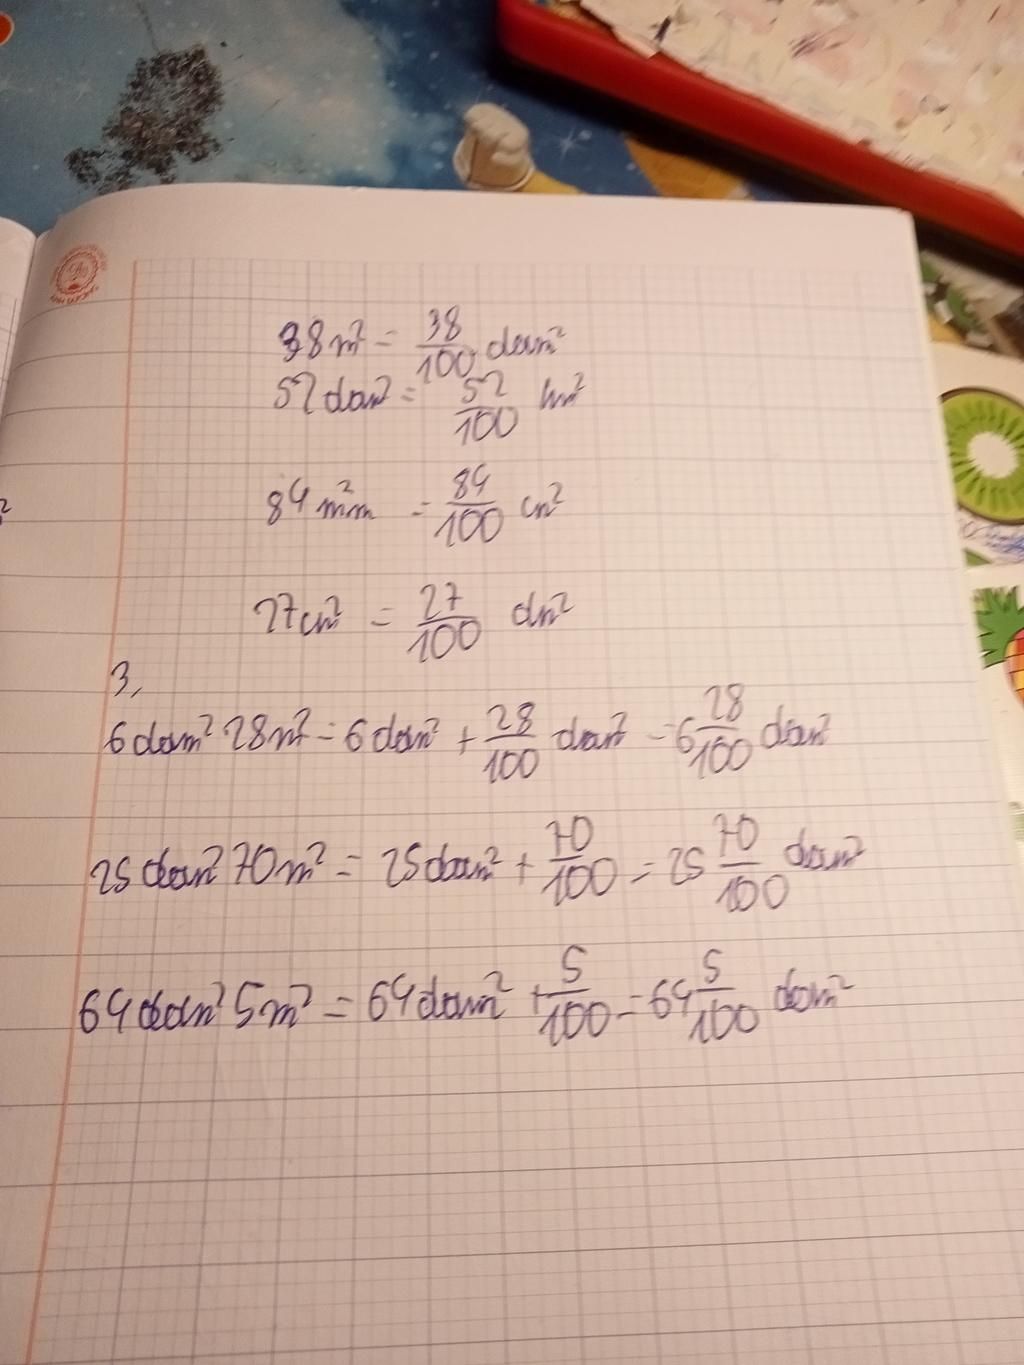 38m² = 38/100 dam²
52dam² = 52/100 hm²
84m²m = 84/100 cm²
27cm² = 27/100 dm²
3,
6dam² 28m² = 6dam² + 28/100 dam² = 6 28/100 dam²
25dam² 70m² = 25dam² + 70/100 = 25 70/100 dam²
64dam² 5m² = 64dam² + 5/100 = 64 5/100 dam²